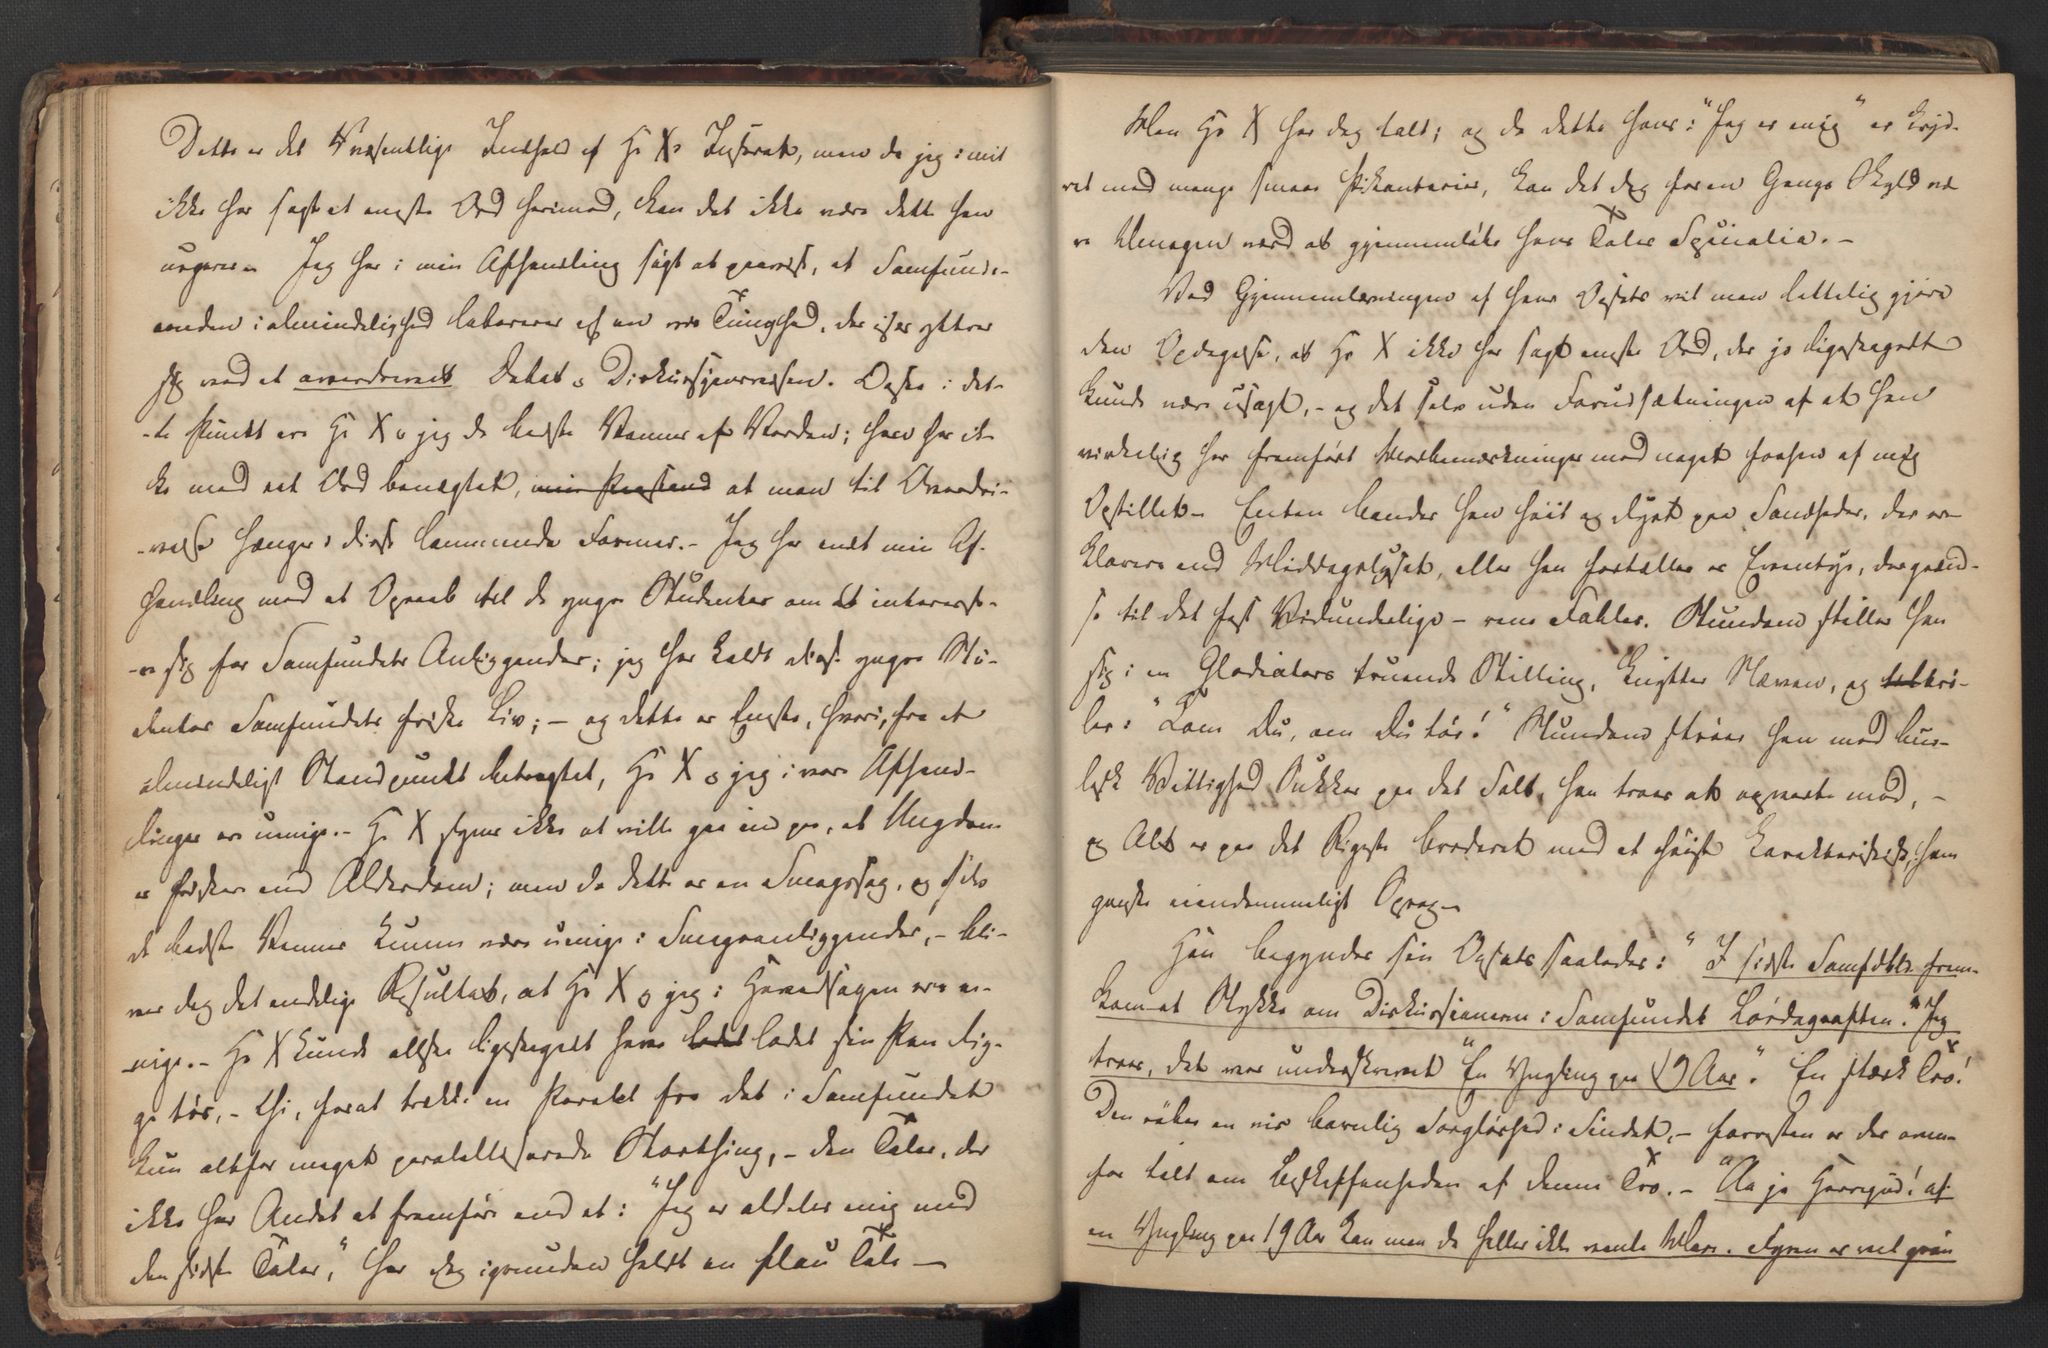 Dette er det Væsentlige Indhold af Hr X's Inserat, men da jeg i mit
ikke har sagt et eneste Ord herimod, kan det ikke være dette han
urgerer. Jeg har i min Afhandling søgt at paavise, at Samfunds-
aanden i Almindelighed laborerer af en vis Tunghed, der især yttrer
sig med et overdrevent Debat o Diskussjonsvæsen. Ogsaa i det-
-te Punkt ere Hr X o jeg de bedste Venner af Verden; han har ik-
ke med eet Ord benægtet, min Paastand at man til Overdri-
-velse hænger i disse lammende Former. – Jeg har endt min Af-
handling med et Opraab til de yngre Studenter om at interesse-
-re sig for Samfundets Anliggender; jeg har kaldt disse yngre Stu-
denter Samfundets friske Liv; – og dette er Eneste, hvori, fra et
almindeligt Standpunkt betragtet, Hr X o jeg i vore Afhand-
linger ere uenige. – Hr X synes ikke at ville gaa ind paa, at Ungdom
er friskere end Alderdom; men da dette er en Smagssag, og selv
de bedste Venner kunne være uenige i Smagsanliggender, – bli-
ver dog det endelige Resultat, at Hr X o jeg i Hovedsagen ere e-
-nige. – Hr X kunde altsaa ligesaagodt have ladet ladet sin Pen lig-
ge tør, – thi, for at trække en Paralel fra det i Samfundet
kun altfor meget paralelliserede Storthing, – den Taler, der
ikke har Andet at fremføre end at: "Jeg er aldeles enig med
den sidste Taler," har dog igrunden holdt en flau Tale –
Men Hr X har dog talt; og da dette hans: "Jeg er enig" er kryd-
ret med mange smaae Pikanterier, kan det dog for en Gangs Skyld væ-
re Umagen værd at gjennemlede hans Tales Specialia. –
Ved Gjennemlæsningen af hans Opsats vil man lettelig gjøre
den Opdagelse, at Hr X ikke har sagt eneste Ord, der jo ligesaagodt
kunde være usagt, – og det selv uden Forudsætningen af at han
virkelig har fremført Modbemærkninger mod noget forhen af mig
Opstillet. Enten bander han høit og dyrt paa Sandheder, der ere
klarere end Middagslyset, eller han fortæller os Eventyr, der grænd-
se til det høist Vidunderlige – rene Fabler. Stundom stiller han
sig i en Gladiators truende Stilling, knytter Næven, og brø-
ler: "Kom Du, om Du tør!" Stundom strøer han med bur-
lesk Vittighed Sukker paa det Salt, han troer at opvarte med, –
og Alt er paa det Rigeste broderet med et høist karakteristisk, ham
ganske eiendommeligt Præg –
Han begynder sin Opsats saaledes: "I sidste Samfdsbl. frem-
kom et Stykke om Diskussionerne i Samfundet Lørdagaften." "Jeg
troer, det var underskrevet "En Yngling paa 19 Aar". En stærk Tro!
Den røber en vis barnlig Sorgløshed i Sindet, – forresten er der oven-
for talt om Beskaffenheden af denne Tro. – "Aa ja Herregud! af
en Yngling paa 19 Aar kan man da heller ikke vente Mere. Fyren er vel grøn